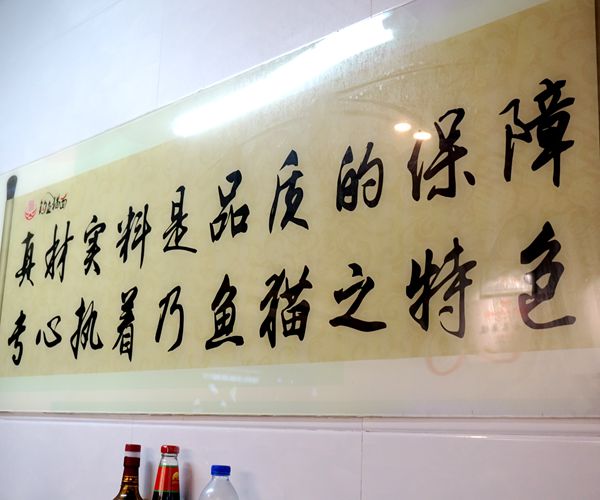 真材实料是品质的保障
专心执着乃鱼猫之特色